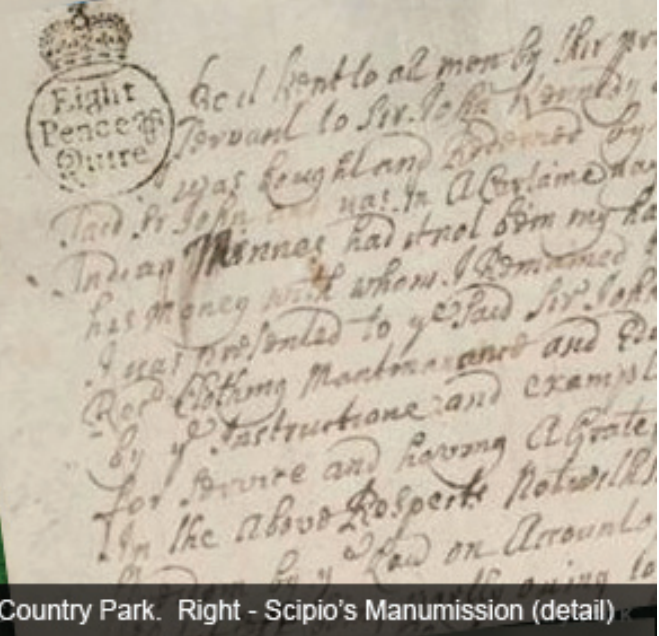 Eight
Pence ⅌
Quire
Be it kent to all men by thir pr
Servant to Sir John Kennedy
I was bought and Redeemed by
Said Sr John and was in A Certaine
Indian Minnes had it not bein my ha
his money with whom I Remained
I was presented to ye said Sir John
Clothing Mantinance and Edu
by ye Instructione and exampl
for service and having A Grate
In the above Respects Notwiths
by ye said on Accounto
owing to
Country Park. Right - Scipio's Manumission (detail)